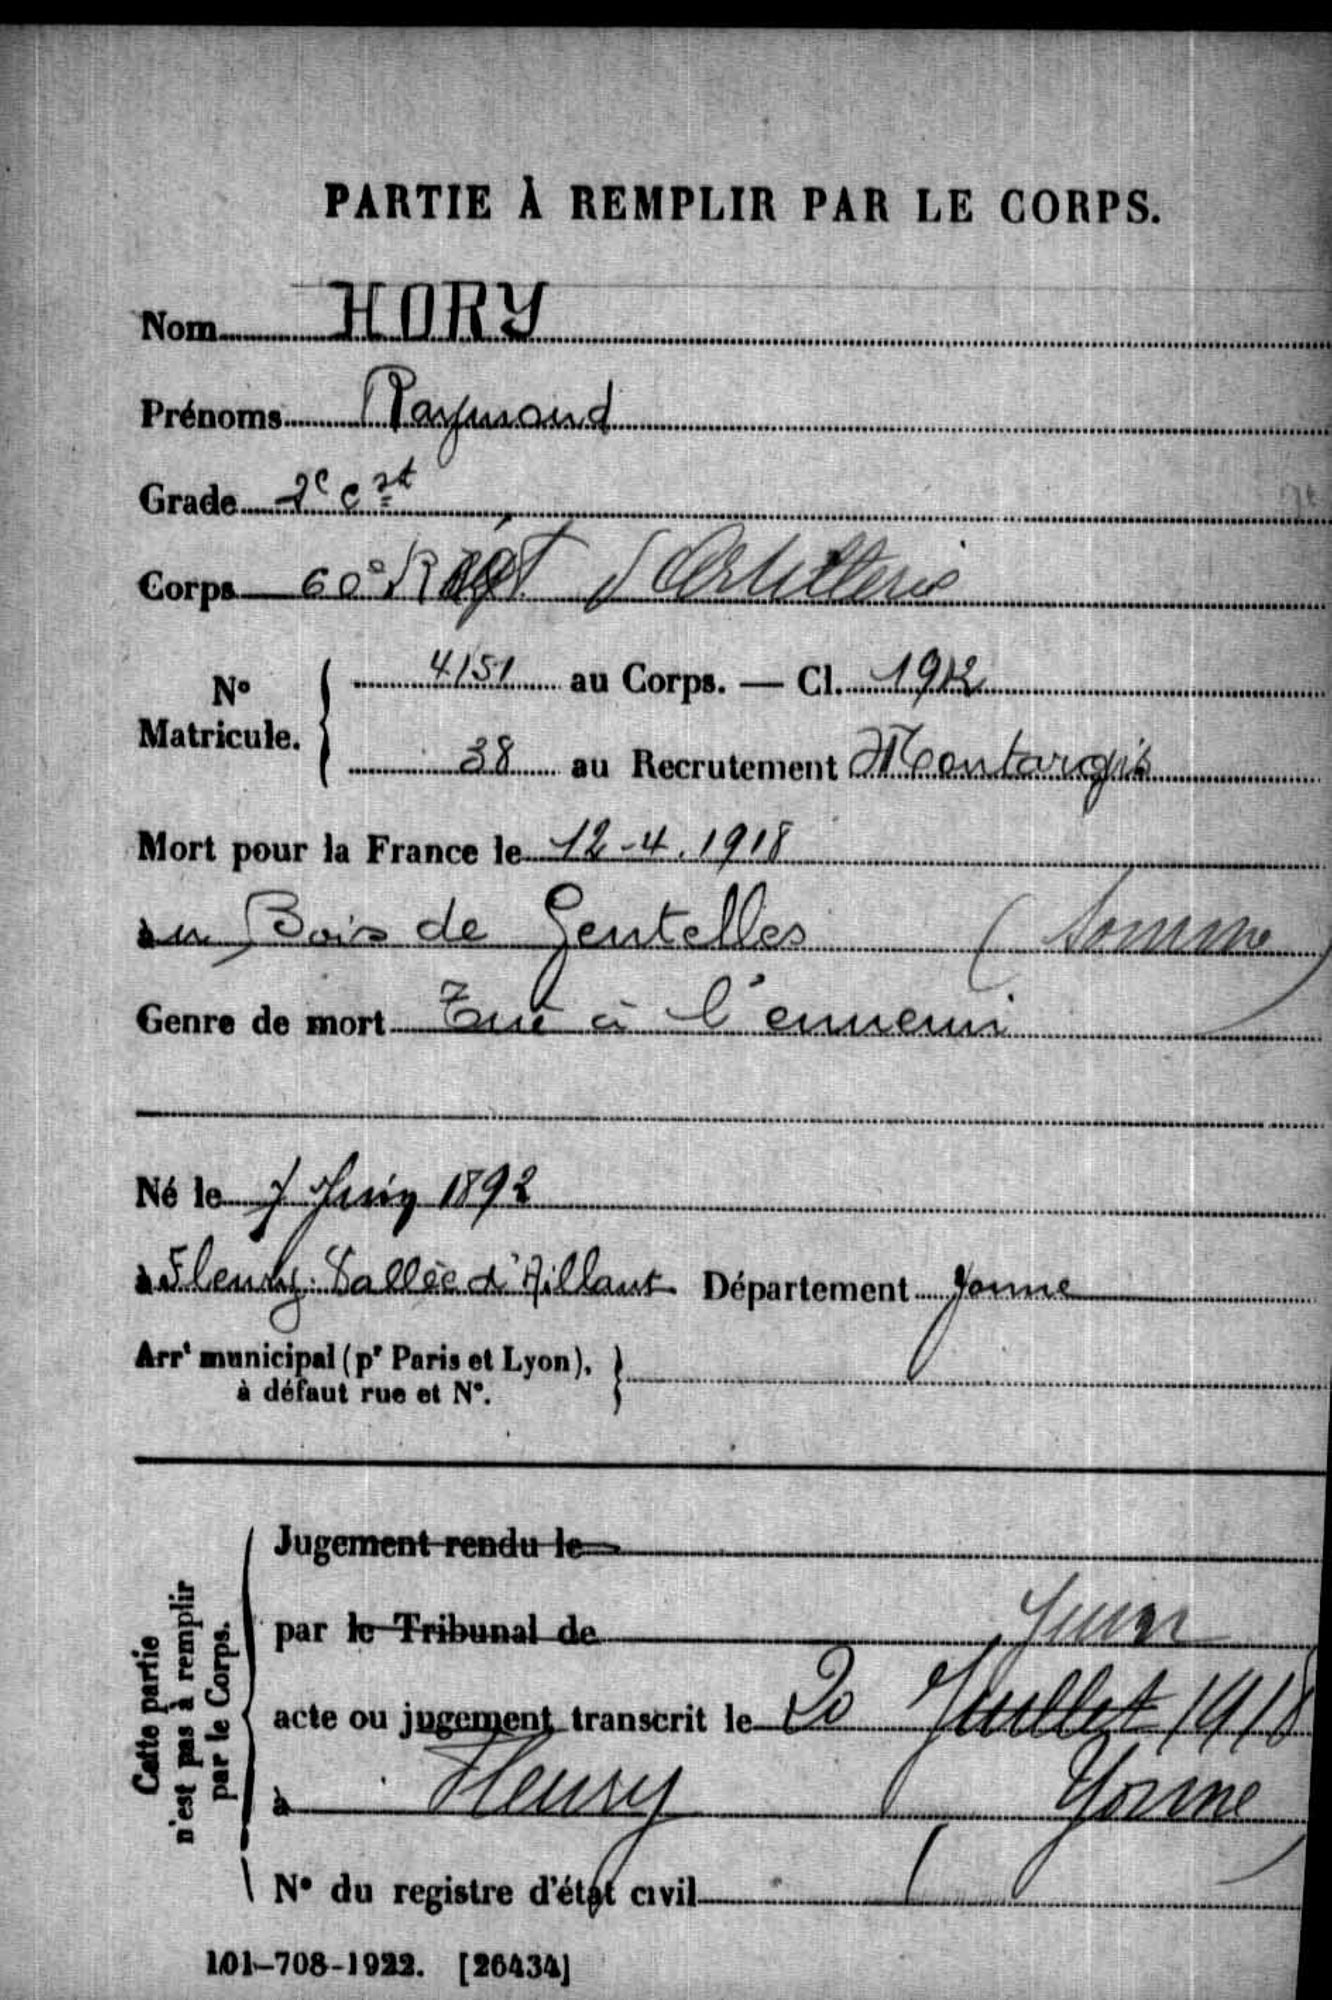 PARTIE À REMPLIR PAR LE CORPS.
Nom HORY
Prénoms Raymond
Grade 2e c st
Corps 60e Régt d'Artillerie
No Matricule. 4151 au Corps. — Cl. 1912
38 au Recrutement Montargis
Mort pour la France le 12-4.1918
au Bois de Gentelles (Somme)
Genre de mort Tué à l'ennemi
Né le 7 Juin 1892
à Fleury Vallée d'Aillant Département Yonne
Arrt municipal (pr Paris et Lyon),
à défaut rue et No.
Cette partie
n'est pas à remplir
par le Corps.
Jugement rendu le
par le Tribunal de
Juin
acte ou jugement transcrit le 20 Juillet 1918
à Fleury (Yonne)
No du registre d'état civil
101-708-1922. [26434]